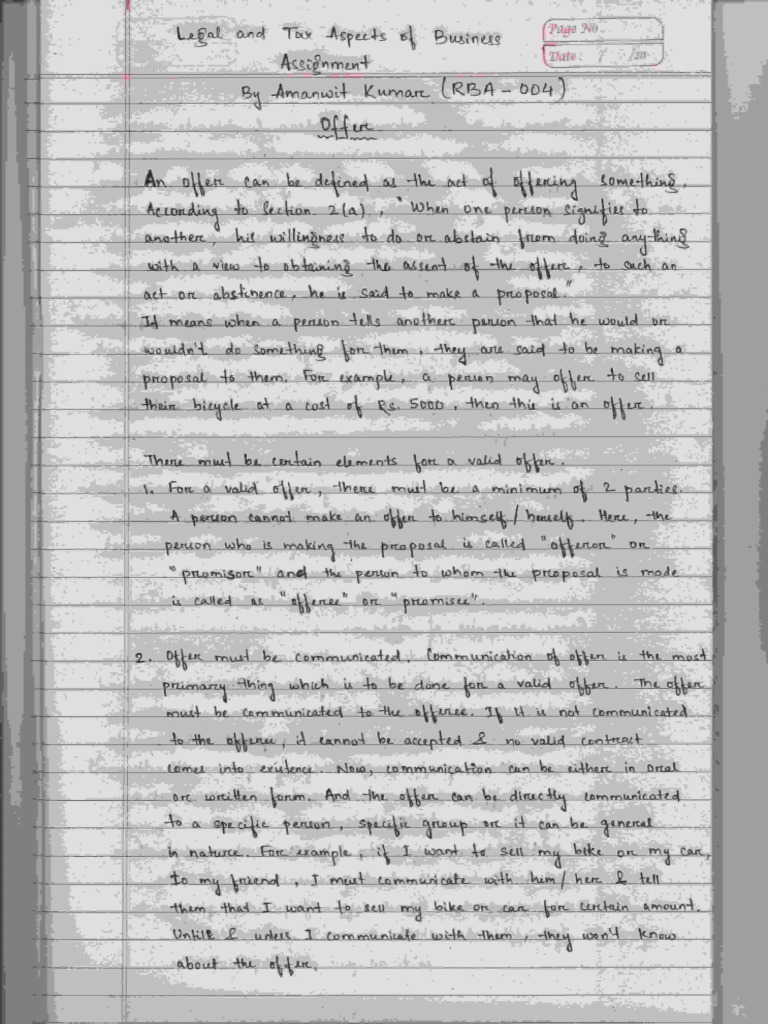 Legal and Tax Aspects of Business
Page No.
Date: / /20
Assignment
By Amanwit Kumar (RBA - 004)
Offer
An offer can be defined as the act of offering something.
According to Section 2(a), "When one person signifies to
another, his willingness to do or abstain from doing anything
with a view to obtaining the assent of the offer, to such an
act or abstinence, he is said to make a proposal."
It means when a person tells another person that he would or
wouldn't do something for them, they are said to be making a
proposal to them. For example, a person may offer to sell
their bicycle at a cost of Rs. 5000, then this is an offer.
There must be certain elements for a valid offer.
1. For a valid offer, there must be a minimum of 2 parties.
A person cannot make an offer to himself/herself. Here, the
person who is making the proposal is called "offeror" or
"promisor" and the person to whom the proposal is made
is called as "offeree" or "promisee".
2. Offer must be communicated. Communication of offer is the most
primary thing which is to be done for a valid offer. The offer
must be communicated to the offeree. If it is not communicated
to the offeree, it cannot be accepted & no valid contract
comes into existence. Now, communication can be either in oral
or written form. And the offer can be directly communicated
to a specific person, specific group or it can be general
in nature. For example, if I want to sell my bike or my car,
to my friend, I must communicate with him/her & tell
them that I want to sell my bike or car for certain amount.
Untile & unless I communicate with them, they won't know
about the offer.